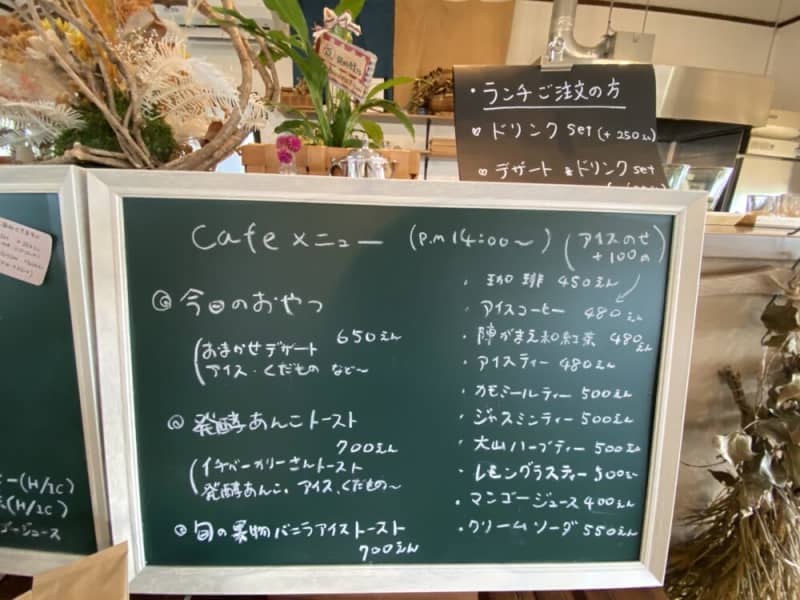 ・ランチご注文の方
ドリンク set (+250えん)
デザート & ドリンク set
Cafe メニュー (P.M 14:00〜)
(アイスのせ
+100円)
◎ 今日のおやつ
650えん
(おまかせデザート
アイス・くだもの など〜
◎ 発酵あんこトースト
700えん
(イチバーカリーさんトースト
発酵あんこ、アイス、くだもの〜
◎ 旬の果物バニラアイストースト
700えん
・珈琲 450えん
・アイスコーヒー 480えん
・陣がまえ和紅茶 480えん
・アイスティー 480えん
・カモミールティー 500えん
・ジャスミンティー 500えん
・大山ハーブティー 500えん
・レモングラスティー 500えん
・マンゴージュース 400えん
・クリームソーダ 550えん
ー(H/IC)
(H/IC)
ゴージュース